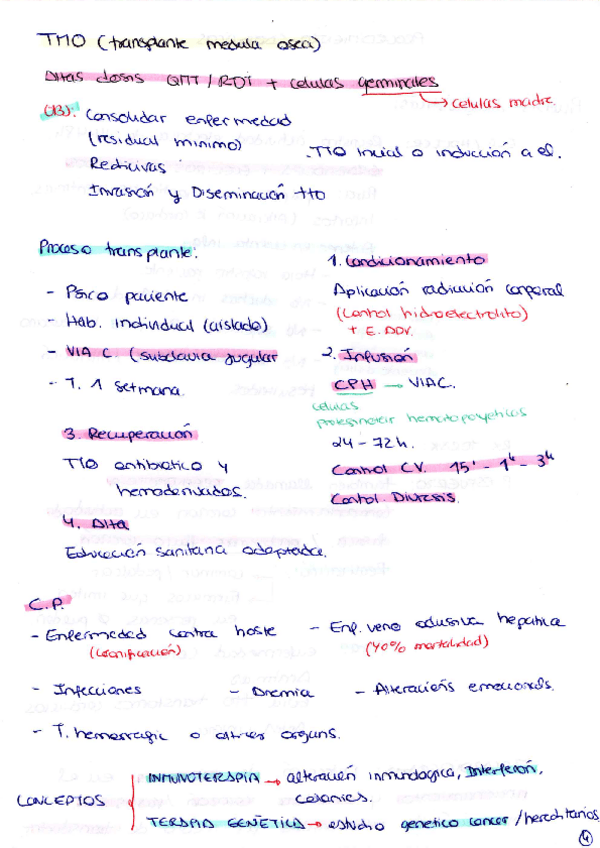 TMO (transplante medula osea)
Altas dosis QMT/RDT + celulas germinales
→ celulas madre.
Consolidar enfermedad
(residual minimo)
.TTO inicial o inducción a el.
Recidivas
Invasión y Diseminación tto
Proceso transplante:
1. Condicionamiento
- Psico paciente
Aplicación radiación corporal
- Hab. individual (aislado)
(Control hidroelectrolito)
+ E. ADV.
- VIA C. (subclavia yugular
2. Infusión
- T. 1 semana.
CPH → VIA C.
celulas
progenitor hematopoyeticos
3. Recuperación
24-72h.
TTO antibiotico y
Control CV. 15' - 1h - 3h
hemoderivados.
Control Diuresis.
4. Alta
Educación sanitaria adaptada.
C.P.
- Enfermedad contra hoste
- Enf. veno oclusiva hepatica
(40% mortalidad)
- Infecciones
- Anemia
- Alteracións emocionals.
- T. hemorragic o altres organs.
CONCEPTOS
INMUNOTERAPIA → alteración inmunologica, Interferón,
TERAPIA GENÉTICA → estudio genetico cancer/hereditarios
4